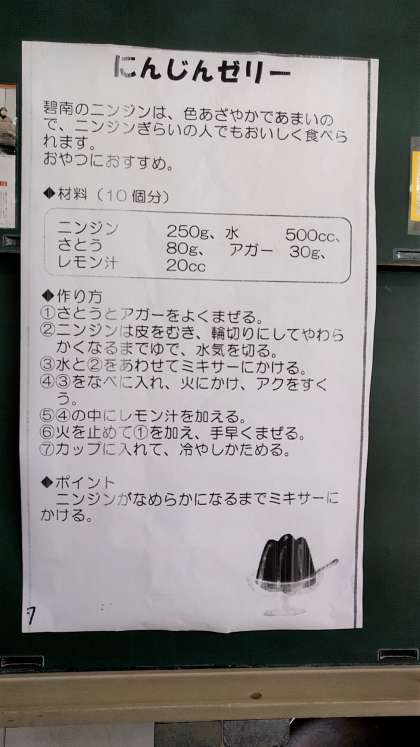 にんじんゼリー
碧南のニンジンは、色あざやかであまいの
で、ニンジンぎらいの人でもおいしく食べら
れます。
おやつにおすすめ。
◆材料（10個分）
ニンジン 250g、水 500cc、
さとう 80g、 アガー 30g、
レモン汁 20cc
◆作り方
①さとうとアガーをよくまぜる。
②ニンジンは皮をむき、輪切りにしてやわら
かくなるまでゆで、水気を切る。
③水と②をあわせてミキサーにかける。
④③をなべに入れ、火にかけ、アクをすく
う。
⑤④の中にレモン汁を加える。
⑥火を止めて①を加え、手早くまぜる。
⑦カップに入れて、冷やしかためる。
◆ポイント
ニンジンがなめらかになるまでミキサーに
かける。
7